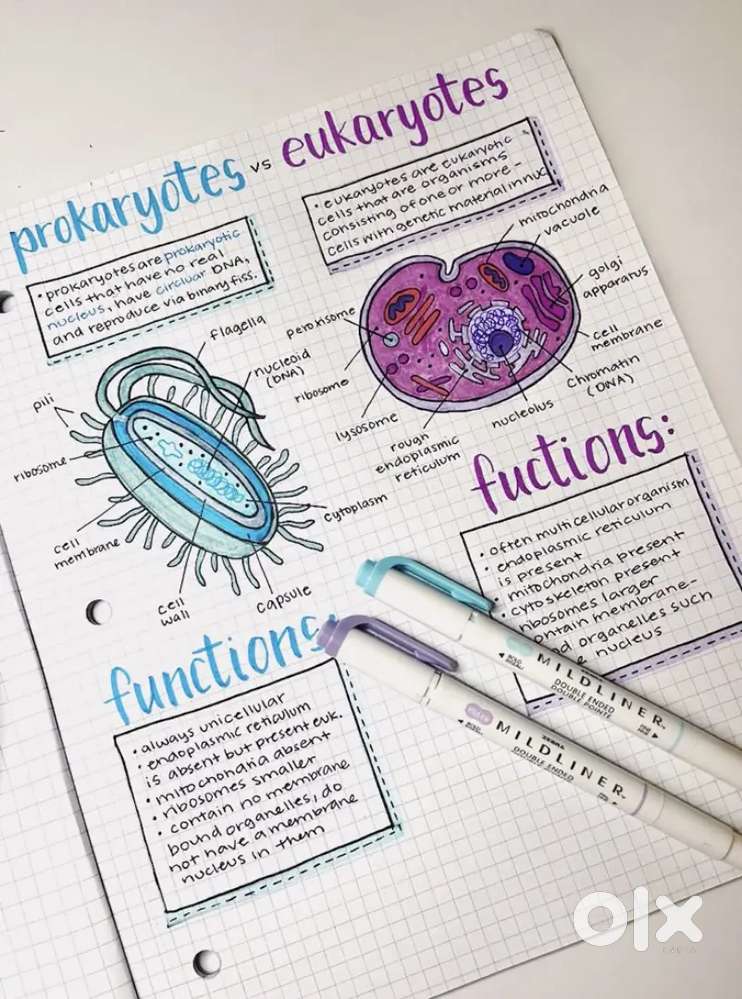 prokaryotes vs eukaryotes
• prokaryotes are prokaryotic
cells that have no real
nucleus, have circluar DNA,
and reproduce via binary fiss.
• eukaryotes are eukaryotic
cells that are organisms
consisting of one or more -
cells with genetic material in nuc
flagella
nucleoid
(DNA)
pili
ribosome
cell
membrane
cell
wall
capsule
cytoplasm
mitochondria
vacuole
golgi
apparatus
cell
membrane
chromatin
(DNA)
nucleolus
rough
endoplasmic
reticulum
lysosome
ribosome
peroxisome
functions:
• always unicellular
• endoplasmic reticulum
is absent but present euk.
• mitochondria absent
• ribosomes smaller
• contain no membrane
bound organelles, do
not have a membrane
nucleus in them
fuctions:
• often multicellular organism
• endoplasmic reticulum
is present
• mitochondria present
• cytoskeleton present
ribosomes larger
ontain membrane-
organelles such
nucleus
MILDLINER
DOUBLE ENDED
DOUBLE POINTE
ZEBRA
MILDLINER
DOUBLE ENDED
olx